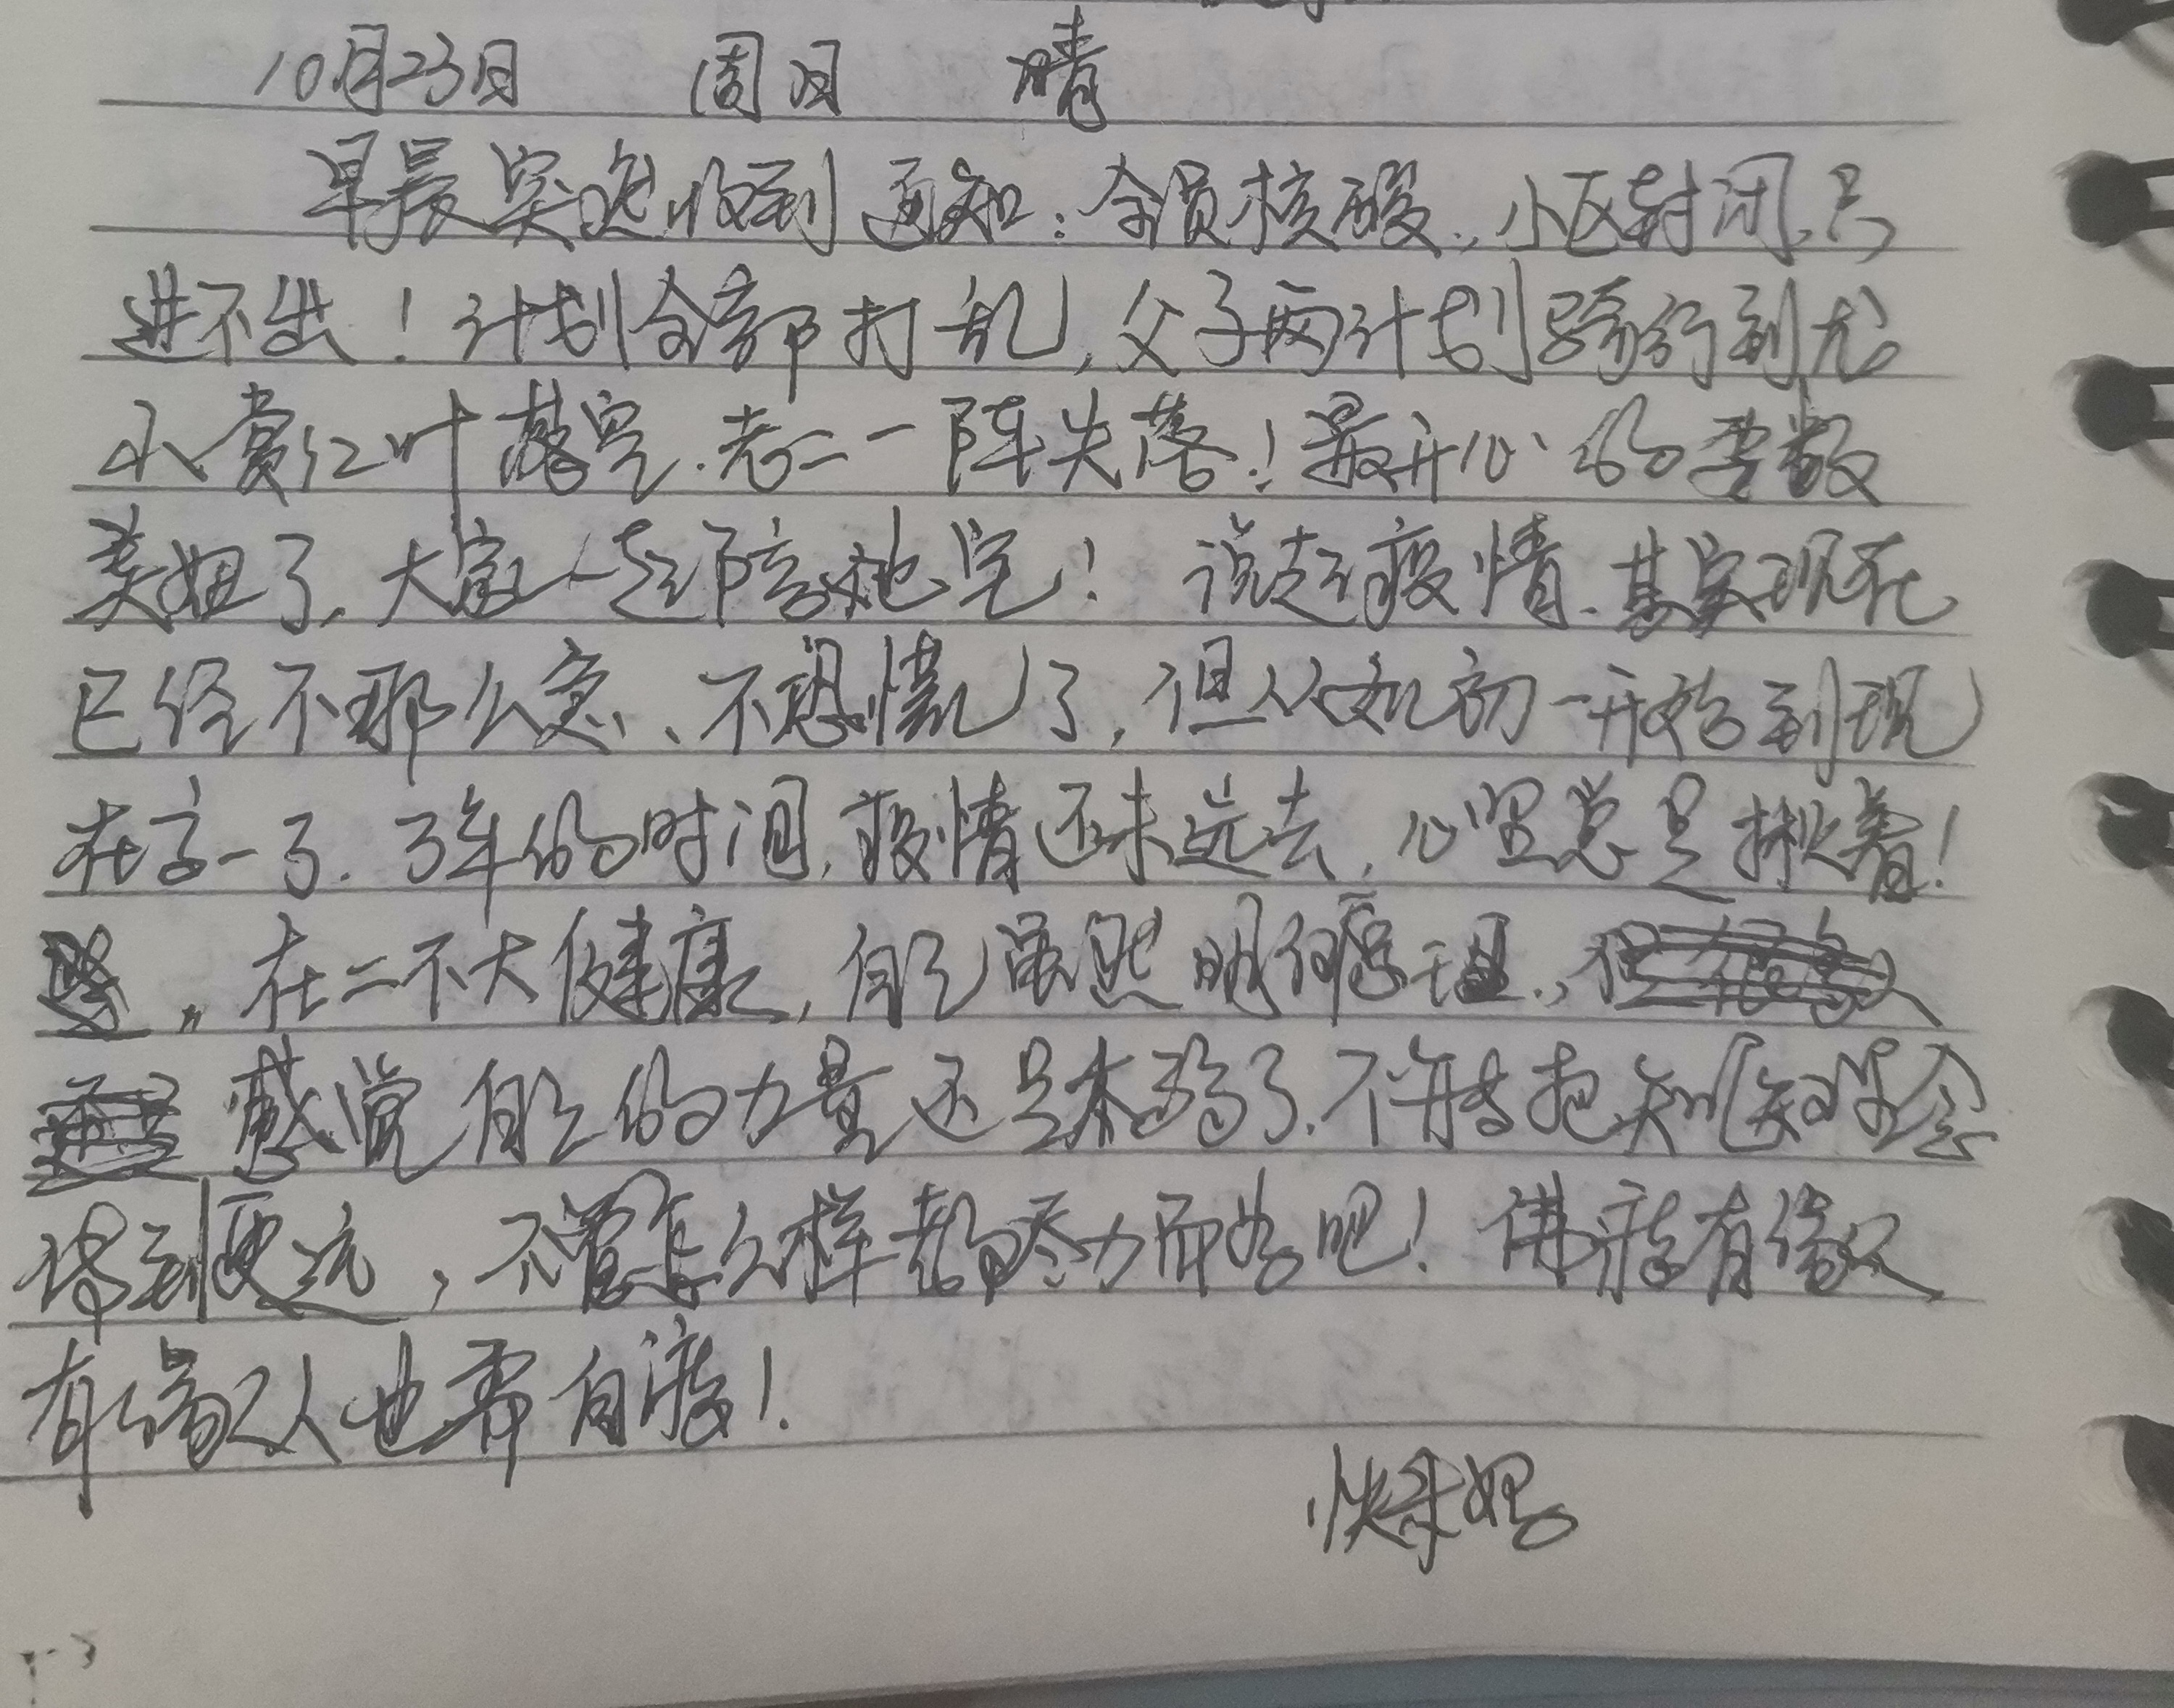 10月23日 周日 晴
早晨突然收到通知:全员核酸,小区封闭,只
进不出!计划全部打乱,父子两计划骑行到龙
山赏红叶落空.老二一阵失落!最开心的要数
美妞了,大家一起陪她完!说起疫情.其实现在
已经不那么急、不恐慌了,但从初一开始到现
在高一了.3年的时间,疫情还未远去,心里总是揪着!
在二不大健康,自己虽然明何理,
感觉自己的力量还是太弱了.不能把知识学会
得到更远,不管怎么样都尽力而为吧!佛度有缘人
有缘人也需自渡!
妈